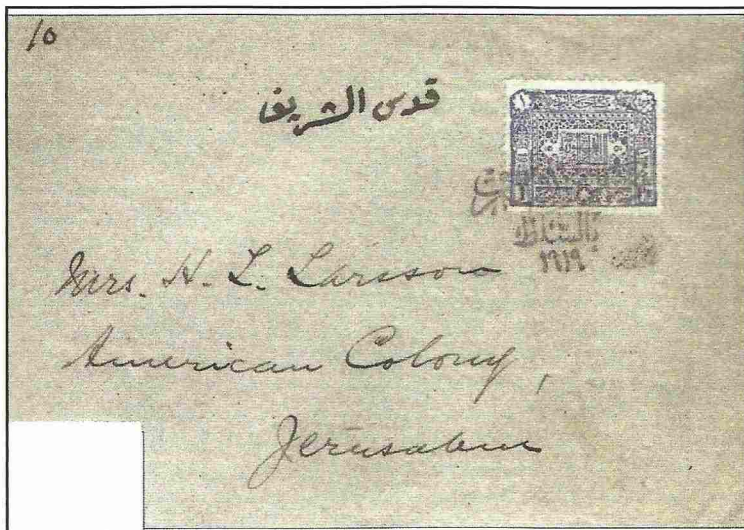 10
قدس الشريف
١٩١٩
Mrs. H. L. Larsson
American Colony,
Jerusalem